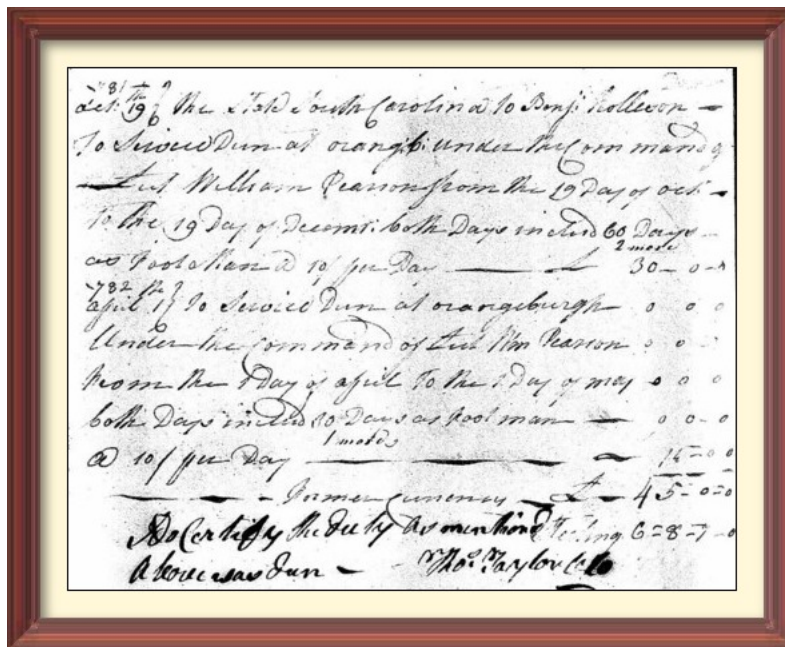 1781
Oct. 19th the State South Carolina to Benj:
To Service Dun at orangb: under the Command of
Leut William Pearson from the 19 Day of oct
To the 19 Day of Decemr: both Days includ 60 Days
2 monts
as Foot Man @ 10/ per Day £ 30-0-
1782
april 1th To Service Dun at orangeburgh 0 0 0
Under the Command of Leut Wm Pearson 0 0 0
From the 1 Day of april To the 1 Day of may 0 0 0
both Days includ 30 Days as Foot man 0 0-0
1 month
@ 10/ per Day 15-0 0
Former Currency £ 45-0=0
I Do Certify the duty As mentiond Sterling 6=8-7
Above was dun Thos Taylor Colo